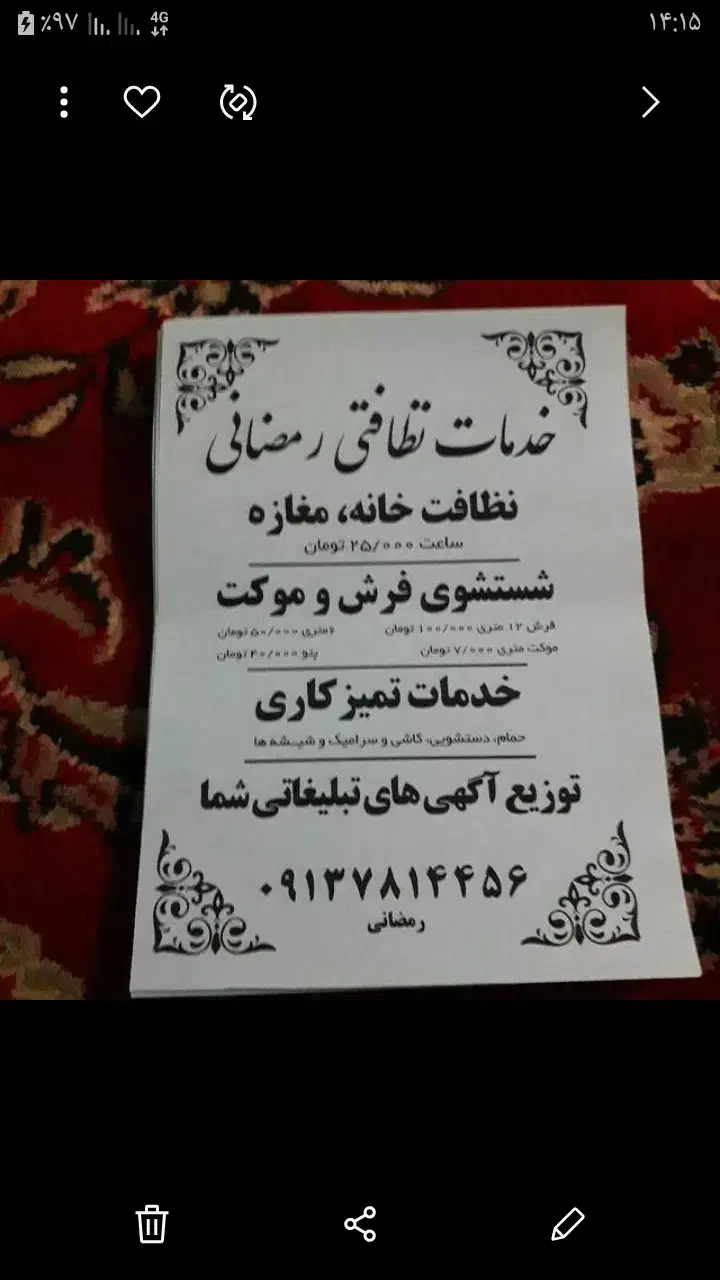 ٪۹۷ 4G ۱۴:۱۵
خدمات نظافتی رمضانی
نظافت خانه، مغازه
ساعت ۲۵/۰۰۰ تومان
شستشوی فرش و موکت
فرش ۱۲ متری ۱۰۰/۰۰۰ تومان ۶متری ۵۰/۰۰۰ تومان
موکت متری ۷/۰۰۰ تومان پتو ۲۰/۰۰۰ تومان
خدمات تمیزکاری
حمام، دستشویی، کاشی و سرامیک و شیشه ها
توزیع آگهی های تبلیغاتی شما
۰۹۱۳۷۸۱۴۴۵۶
رمضانی